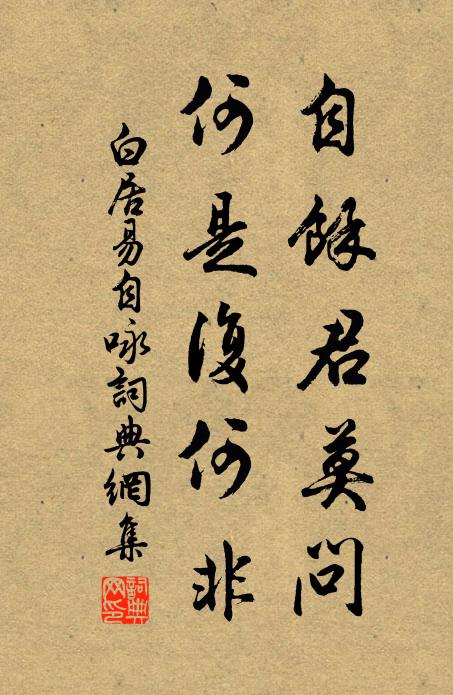 自餘君莫問
何是復何非
白居易自咏詞典網集
詞典網印